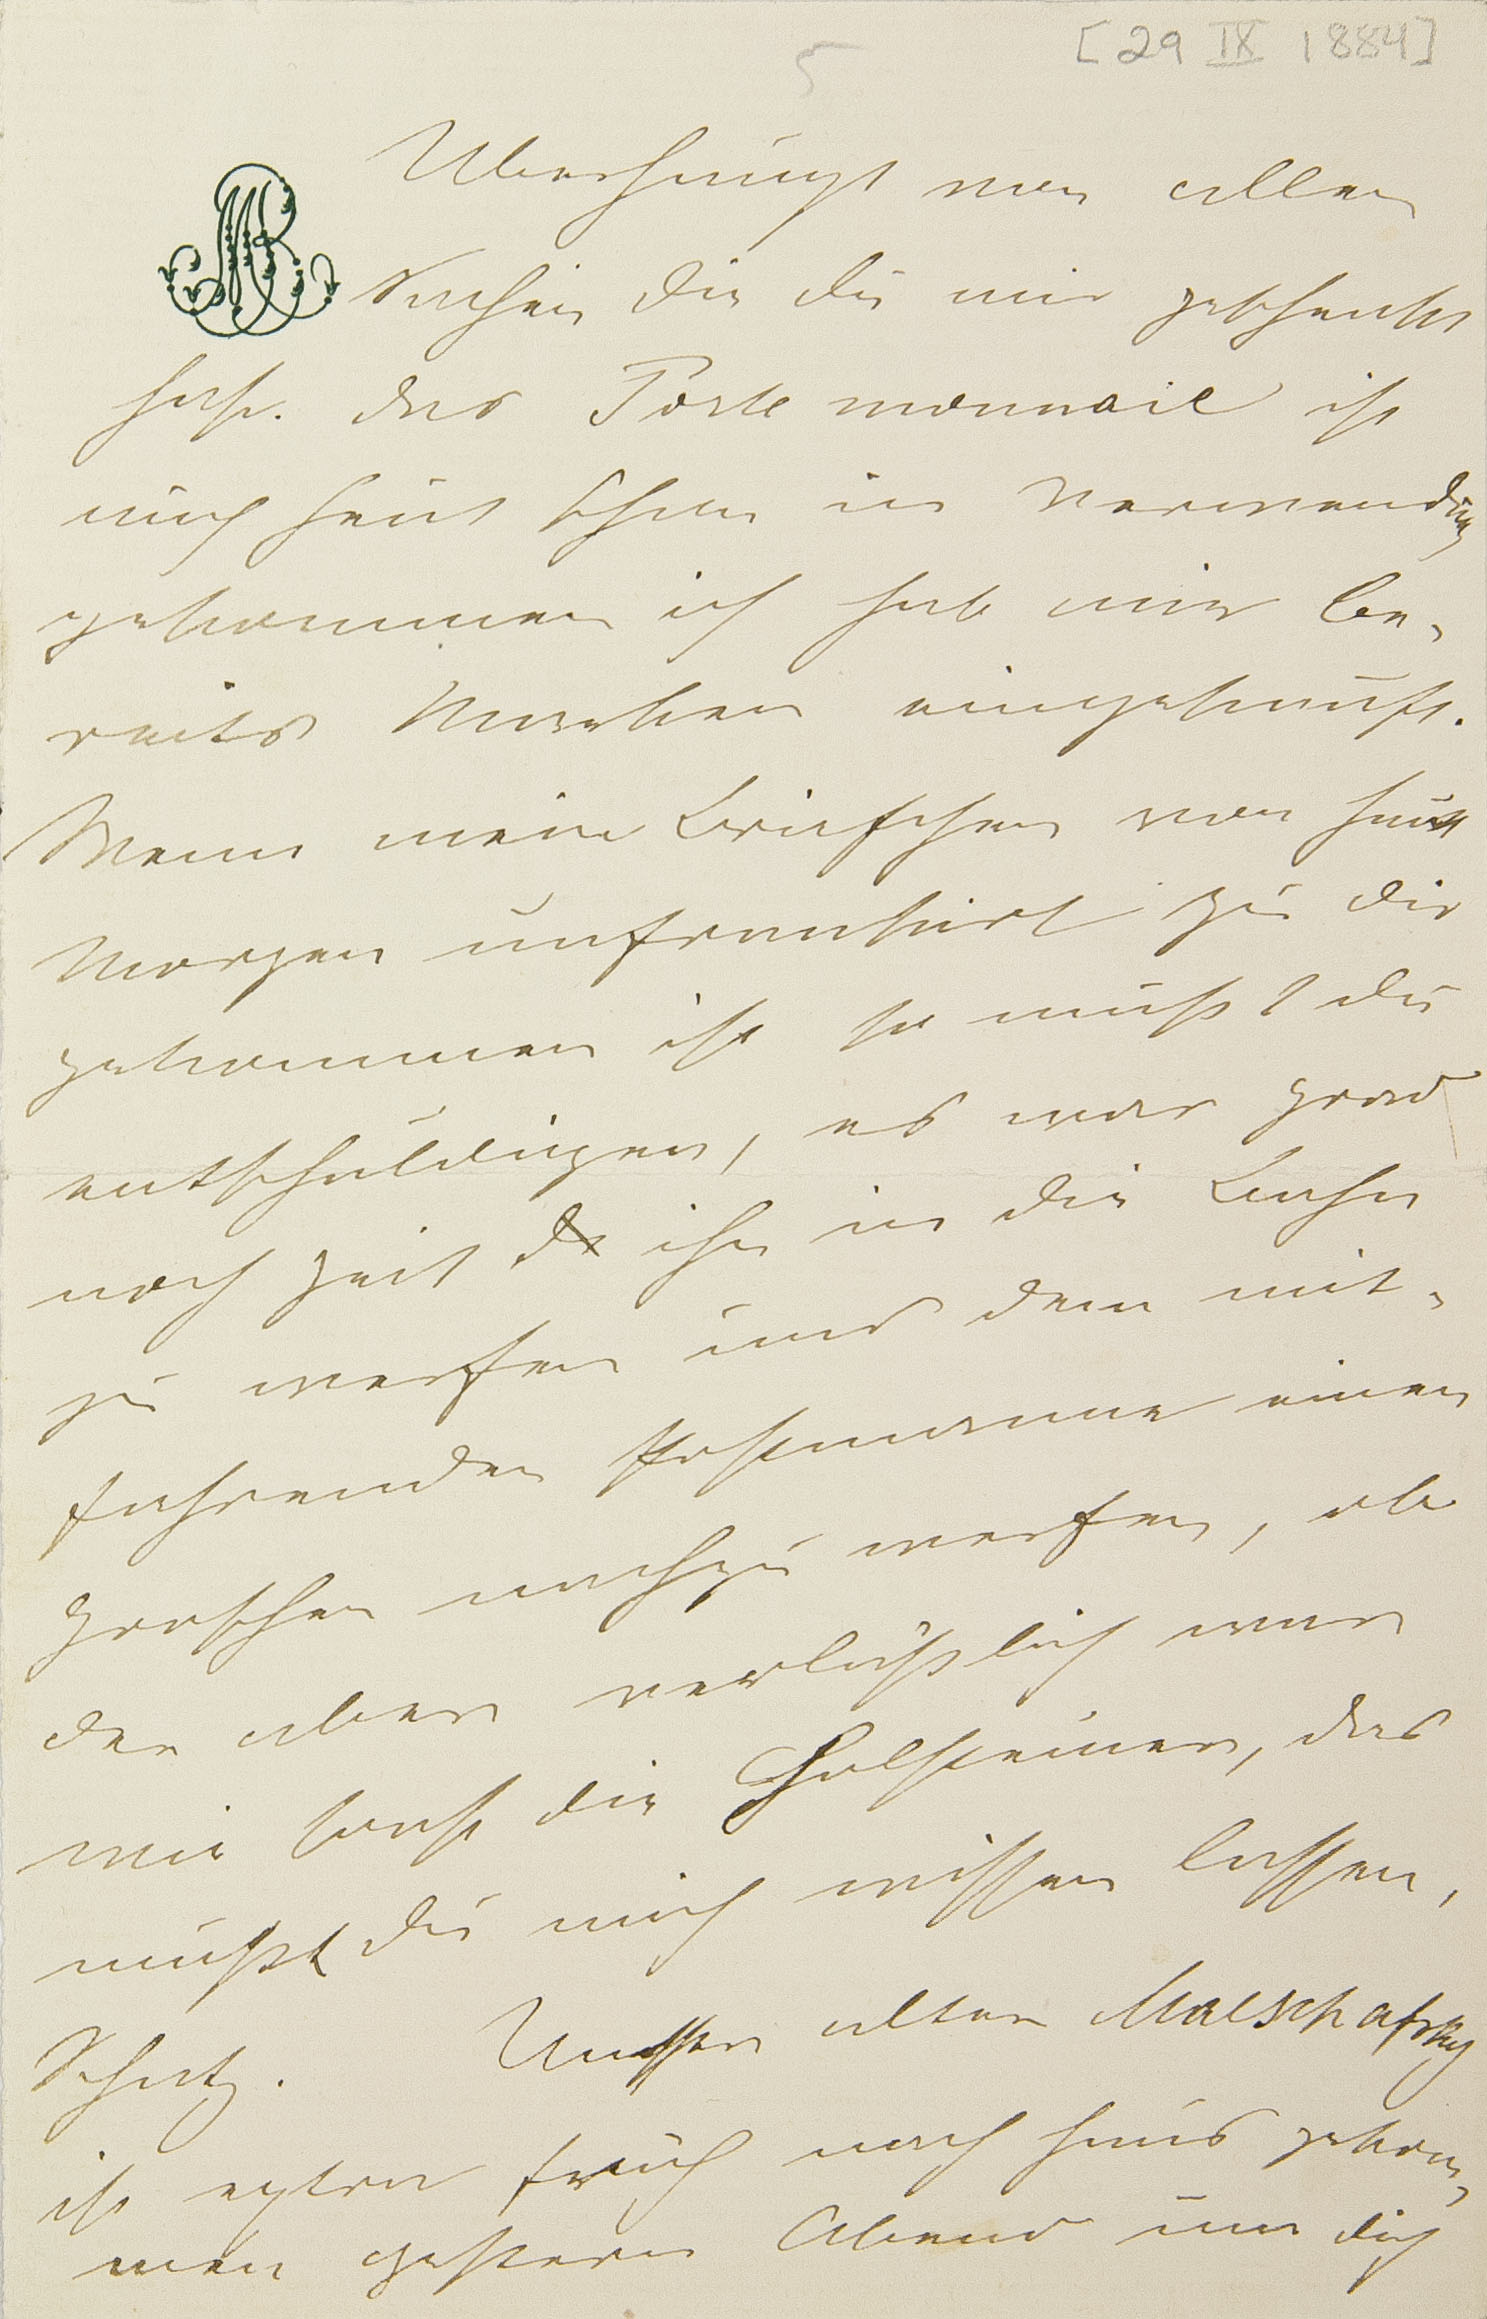 [29 IX 1884]
5
MB
Überhaupt von allen
Sachen die du mir geschenkt
hast. das Portemonnaie ist
auch heut schon in Verwendung
gekommen ich hab mir be-
reits Marken eingekauft.
Wenn mein Briefchen von heut
Morgen unfrankirt zu dir
gekommen ist so mußt du
entschuldigen, es war grad
noch Zeit ihn in die Bahn
zu werfen und dem mit-
fahrenden Postmanne einen
Groschen nachzuwerfen, ob
der aber verläßlich war
wie sonst die Holsteiner, das
mußt du mich wissen lassen,
Schatz. Unser alter Malschafsky
ist extra früh nach Haus gekom-
men gestern Abend um dich